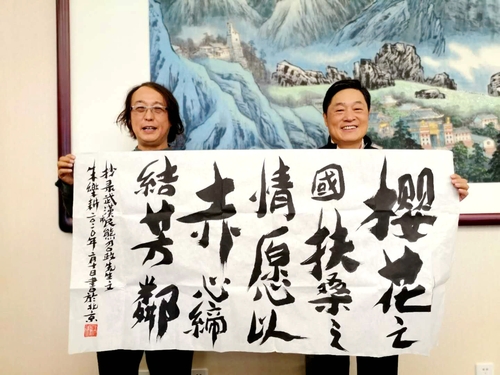 櫻花之
國扶桑之
情愿以
赤心締
結芳鄰
抄录武漢熊召政先生文
朱樂耕二〇二〇年二月十日書於北京